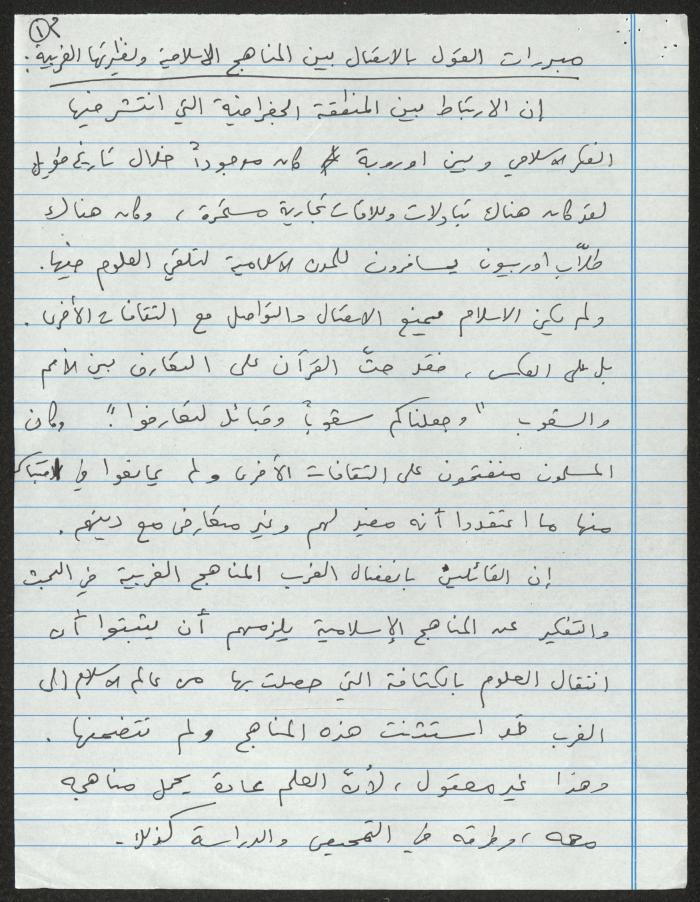 م ١
مبررات القول بالاتصال بين المناهج الإسلامية ونظيرتها الغربية:
إن الارتباط بين المنطقة الجغرافية التي انتشر فيها
الفكر الاسلامي وبين اوروبة كان موجوداً خلال تاريخ طويل
لقد كان هناك تبادلات وعلاقات تجارية مستمرة، وكان هناك
طلاّب اوربيون يسافرون للمدن الاسلامية لتلقي العلوم فيها.
ولم يكن الاسلام يمنع الاتصال والتواصل مع الثقافات الأخرى.
بل على العكس، فقد حثّ القرآن على التعارف بين الأمم
والشعوب "وجعلناكم شعوباً وقبائل لتعارفوا". وكان
المسلمون منفتحون على الثقافات الأخرى ولم يمانعوا في
منها ما اعتقدوا أنه مفيد لهم وغير متعارض مع دينهم.
إن القائلين بانفصال الغرب المناهج الغربية في البحث
والتفكير عن المناهج الإسلامية يلزمهم أن يثبتوا أن
انتقال العلوم بالكثافة التي حصلت بها من عالم الاسلام إلى
الغرب قد استثنت هذه المناهج ولم تتضمنها.
وهذا غير معقول، لأنّ العلم عادة يحمل مناهجه
معه، وطرقه في التمحيص والدراسة كذلك.